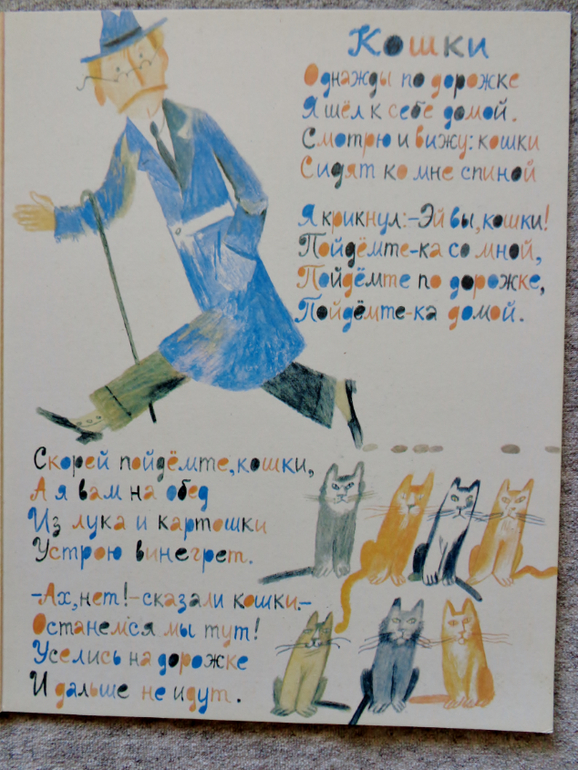 Кошки
Однажды по дорожке
Я шёл к себе домой.
Смотрю и вижу: кошки
Сидят ко мне спиной
Я крикнул:-Эй вы, кошки!
Пойдёмте-ка со мной,
Пойдёмте по дорожке,
Пойдёмте-ка домой.
Скорей пойдёмте, кошки,
А я вам на обед
Из лука и картошки
Устрою винегрет.
-Ах, нет!-сказали кошки.-
Останемся мы тут!
Уселись на дорожке
И дальше не идут.